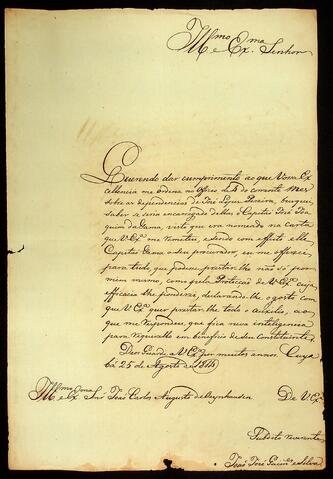 Illmo e Exmo Senhor
Querendo dar cumprimento ao que Vossa Ex
cellencia me ordena no Officio de 4 do corrente mez
sobre as dependencias de José Lopes Pereira, busquei
saber se seria encarregado dellas o Capitão José Joa
quim da Gama, visto que era nomeado na carta
que V Exa me remetteu, e sendo com effeito elle
Capitão Gama o seu procurador, eu me offereci
para tudo, que podesse prestar-lhe não só por
mim mesmo, como pela Protecção de V Exa cuja
efficacia lhe ponderei, declarando-lhe o gosto com
que V Exa quer prestar-lhe todo o Auxilio, ao
que me respondeu, que fica nessa inteligencia
para requerelle em beneficio do seu Constituinte.
Deos Guarde a V Exa por muitos annos. Cuya
bá 25 de Agosto de 1814
Illmo e Exmo Snr João Carlos Augusto d'Oeynhausen
De V Exa
Subdito reverente
João José Guimes e Silva